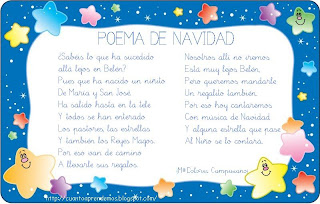 POEMA DE NAVIDAD
¿Sabéis lo que ha sucedido
allá lejos en Belén?
Pues que ha nacido un niñito
De María y San José.
Ha salido hasta en la tele
Y todos se han enterado
Los pastores, las estrellas
Y también los Reyes Magos.
Por eso van de camino
A llevarle sus regalos.
Nosotros allí no iremos
Está muy lejos Belén,
Pero queremos mandarle
Un regalito también.
Por eso hoy cantaremos
Con música de Navidad
Y alguna estrella que pase
Al Niño se lo contará.
(Mª Dolores Campuzano)
http://cuentosprendemos.blogspot.com/